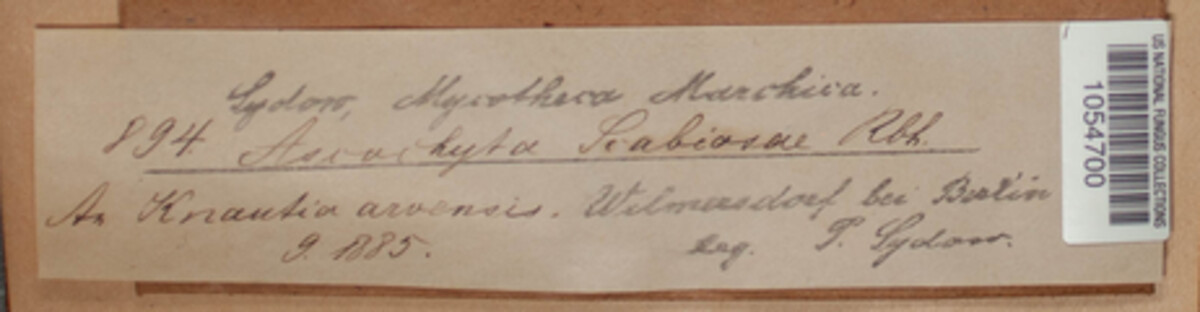 Sydow, Mycotheca Marchica.
894. Ascochyta Scabiosae Rbh.
An Knautia arvensis. Wilmersdorf bei Berlin
9. 1885. leg. P. Sydow.
US NATIONAL FUNGUS COLLECTIONS
1054700